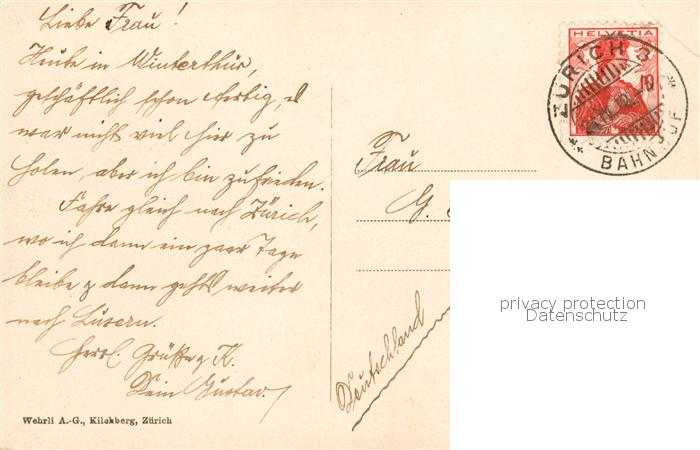 Liebe Frau!
Heute in Winterthur,
geschäftlich schon fertig, es
war nicht viel hier zu
holen, aber ich bin zufrieden.
Fahre gleich nach Zürich,
wo ich dann ein paar Tage
bleibe & dann gehts weiter
nach Luzern.
Herzl. Grüße & K.
Dein Gustav.
Wehrli A.-G., Kilchberg, Zürich
HELVETIA
ZÜRICH 3
BAHNHOF
Frau
G.
Deutschland
privacy protection
Datenschutz